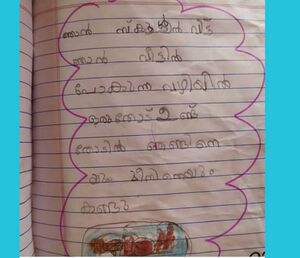 ഞാൻ സ്കൂളിൽ വിട്ട്
ഞാൻ വീട്ടിൽ
പോകുന്ന വഴിയിൽ
ഒരു തോട് ഉണ്ട്
തോടിൽ ഞണ്ടിനെ
യും മീനിനെയും
കണ്ടു